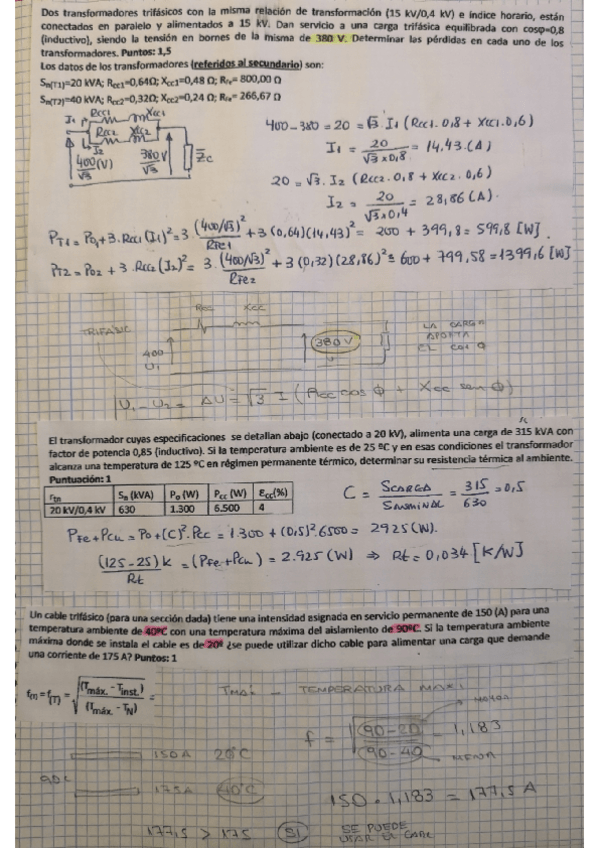 Dos transformadores trifásicos con la misma relación de transformación (15 kV/0,4 kV) e índice horario, están
conectados en paralelo y alimentados a 15 kV. Dan servicio a una carga trifásica equilibrada con cosφ=0,8
(inductivo), siendo la tensión en bornes de la misma de 380 V. Determinar las pérdidas en cada uno de los
transformadores. Puntos: 1,5
Los datos de los transformadores (referidos al secundario) son:
Sn(T1)=20 kVA; Rcc1=0,64Ω; Xcc1=0,48 Ω; RFe= 800,00 Ω
Sn(T2)=40 kVA; Rcc2=0,32Ω; Xcc2=0,24 Ω; RFe= 266,67 Ω
I1 Rcc1 Xcc1
Rcc2 Xcc2
I2
400/√3 (V) 380V/√3 Z̄c
400-380 = 20 = √3 I1 (Rcc1.0,8 + Xcc1.0,6)
I1 = 20/(√3 x 0,8) = 14,43 (A)
20 = √3. I2 (Rcc2.0,8 + Xcc2.0,6)
I2 = 20/(√3 x 0,4) = 28,86 (A).
PT1 = P01 + 3.Rcc1(I1)² = 3 (400/√3)²/RFe1 + 3 (0,64)(14,43)² = 200 + 399,8 = 599,8 [W].
PT2 = P02 + 3 Rcc2(I2)² = 3 (400/√3)²/RFe2 + 3 (0,32)(28,86)² = 600 + 799,58 = 1399,6 [W]
Rcc Xcc
TRIFÁSIC
400
U1
380 V
U2
LA CARGA
APORTA
EL COS φ
|U1 - U2 = ΔU = √3 I (Rcc cos φ + Xcc sen φ)
El transformador cuyas especificaciones se detallan abajo (conectado a 20 kV), alimenta una carga de 315 kVA con
factor de potencia 0,85 (inductivo). Si la temperatura ambiente es de 25 ºC y en esas condiciones el transformador
alcanza una temperatura de 125 ºC en régimen permanente térmico, determinar su resistencia térmica al ambiente.
Puntuación: 1
rtn Sn (kVA) Po (W) Pcc (W) εcc(%)
20 kV/0,4 kV 630 1.300 6.500 4
C = SCARGA/SNOMINAL = 315/630 = 0,5
PFe + PCu = Po + (C)². Pcc = 1.300 + (0,5)². 6500 = 2925 (W).
(125-25)k/Rt = (PFe + PCu) = 2.925 (W) ⇒ Rt = 0,034 [K/W]
Un cable trifásico (para una sección dada) tiene una intensidad asignada en servicio permanente de 150 (A) para una
temperatura ambiente de 40ºC con una temperatura máxima del aislamiento de 90ºC. Si la temperatura ambiente
máxima donde se instala el cable es de 20º ¿se puede utilizar dicho cable para alimentar una carga que demande
una corriente de 175 A? Puntos: 1
f(T) = √((Tmáx. - Tinst.)/(Tmáx. - TN)) =
- TEMPERATURA
f = √((90-20)/(90-40)) = 1,183
150A 20°C
175A 40°C
150 . 1,183 = 177,5 A
177,5 > 175 SI
SE PUEDE
USAR EL CABL